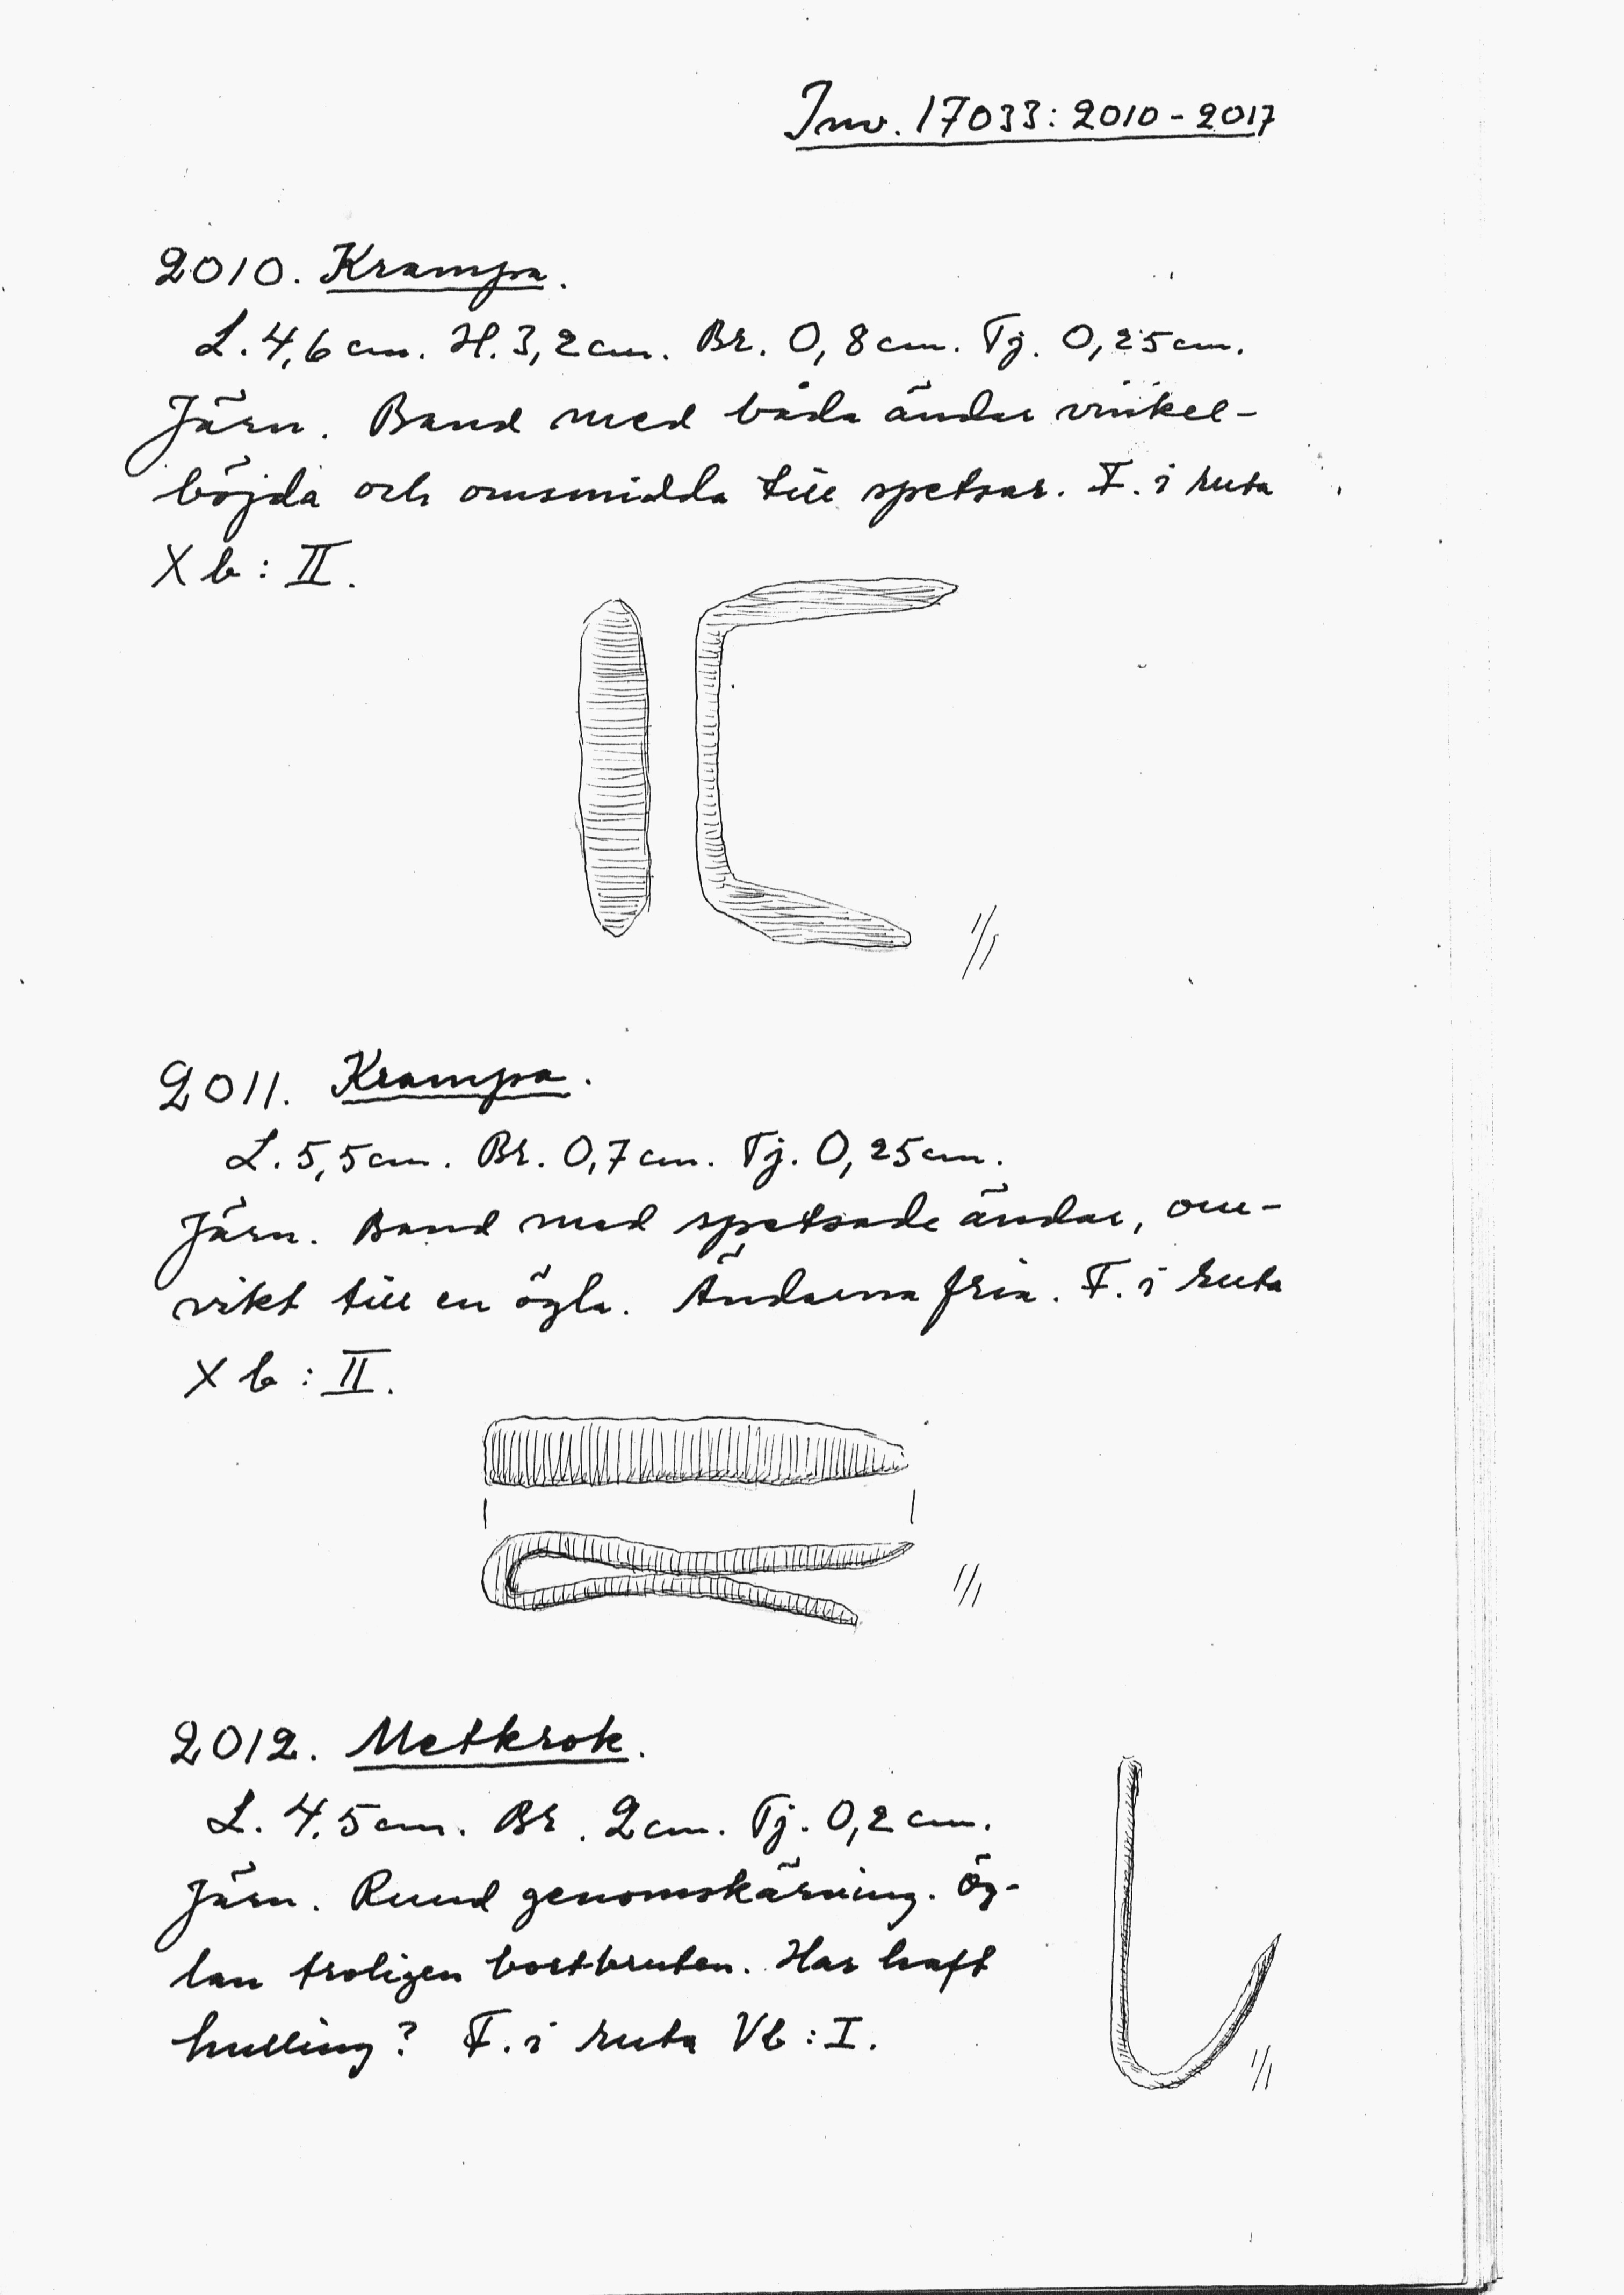 Inv. 17033: 2010-2017
2010. Krampa.
L. 4,6 cm. H. 3,2 cm. Br. 0,8 cm. Tj. 0,25 cm.
Järn. Band med båda ändar vinkel-
böjda och omsmidda till spetsar. F. i ruta
X b : II.
1/1
2011. Krampa.
L. 5,5 cm. Br. 0,7 cm. Tj. 0,25 cm.
Järn. Band med spetsade ändar, om-
vikt till en ögla. Ändarna fria. F. i ruta
X b : II.
1/1
2012. Metkrok.
L. 4,5 cm. Br. 2 cm. Tj. 0,2 cm.
Järn. Rund genomskärning. Ög-
lan troligen bortbruten. Har haft
hulling? F. i ruta Vb : I.
1/1